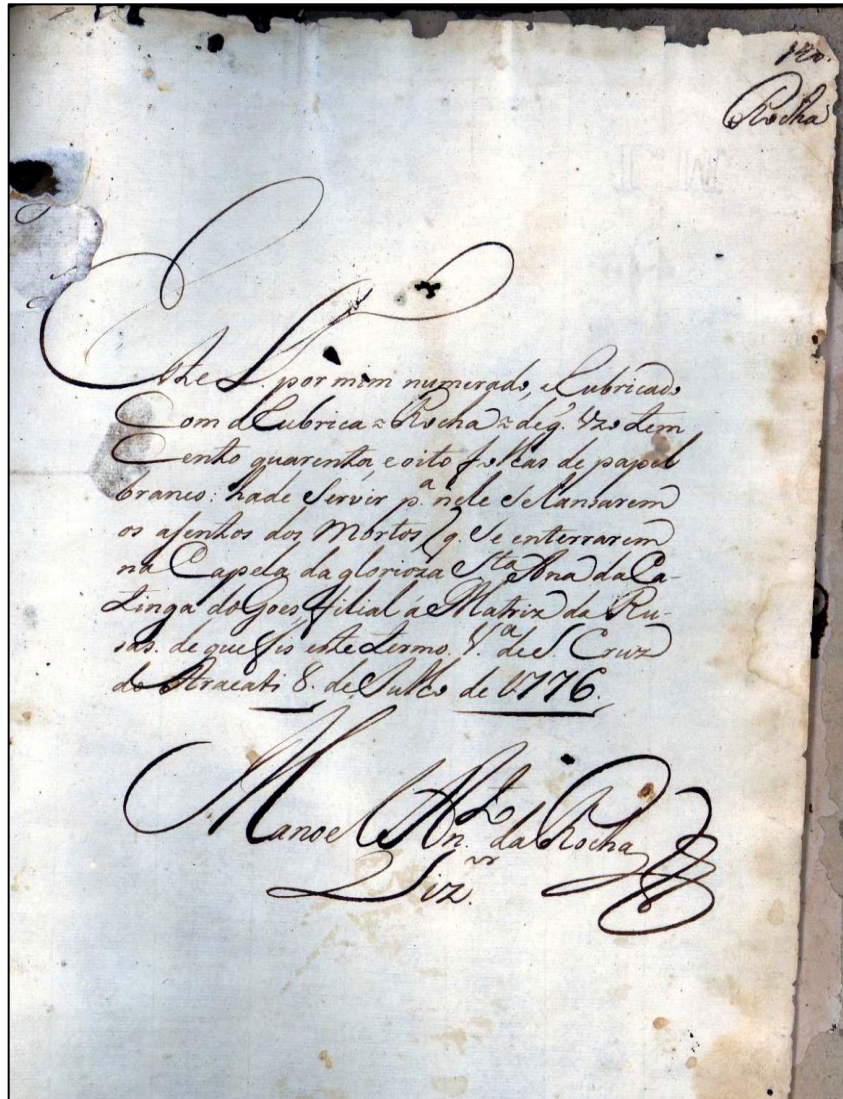 Rocha
Este L.º por mim numerado, e Rubricado
Com a Rubrica = Rocha = de q̃. Uzo tem
Cento quarenta, e oito folhas de papel
branco: hade Servir p.ª nele Se lansarem
os asentos dos Mortos, q. Se enterrarem
na Capela da glorioza S.ta Ana da Ca-
tinga do Goes, filial á Matriz da Ru-
sas. de que fis este termo. V.ª de S. Cruz
do Aracati 8. de Julho de 1776.
Manoel An.to da Rocha